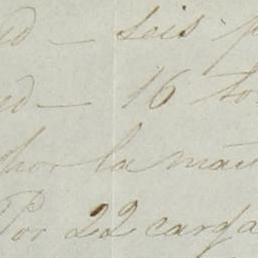 ed — seis p
ed — 16 to
por la mai
Por 22 carga